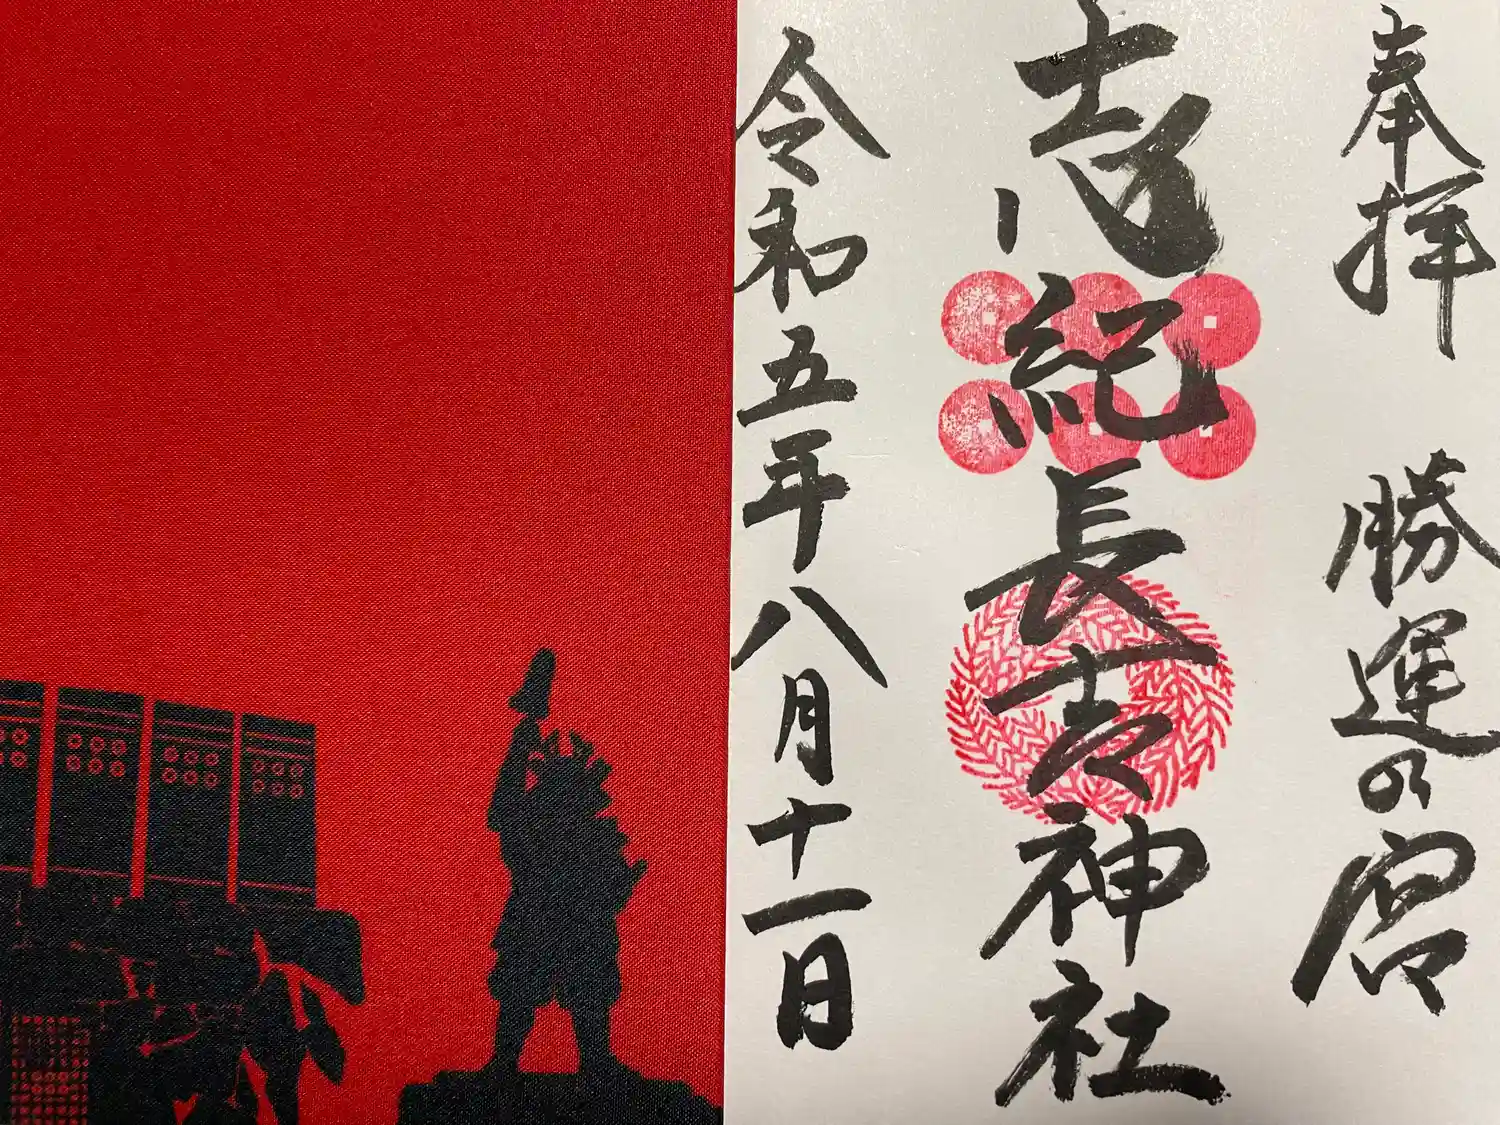 奉拝　勝運の宮
志紀長吉神社
令和五年八月十一日